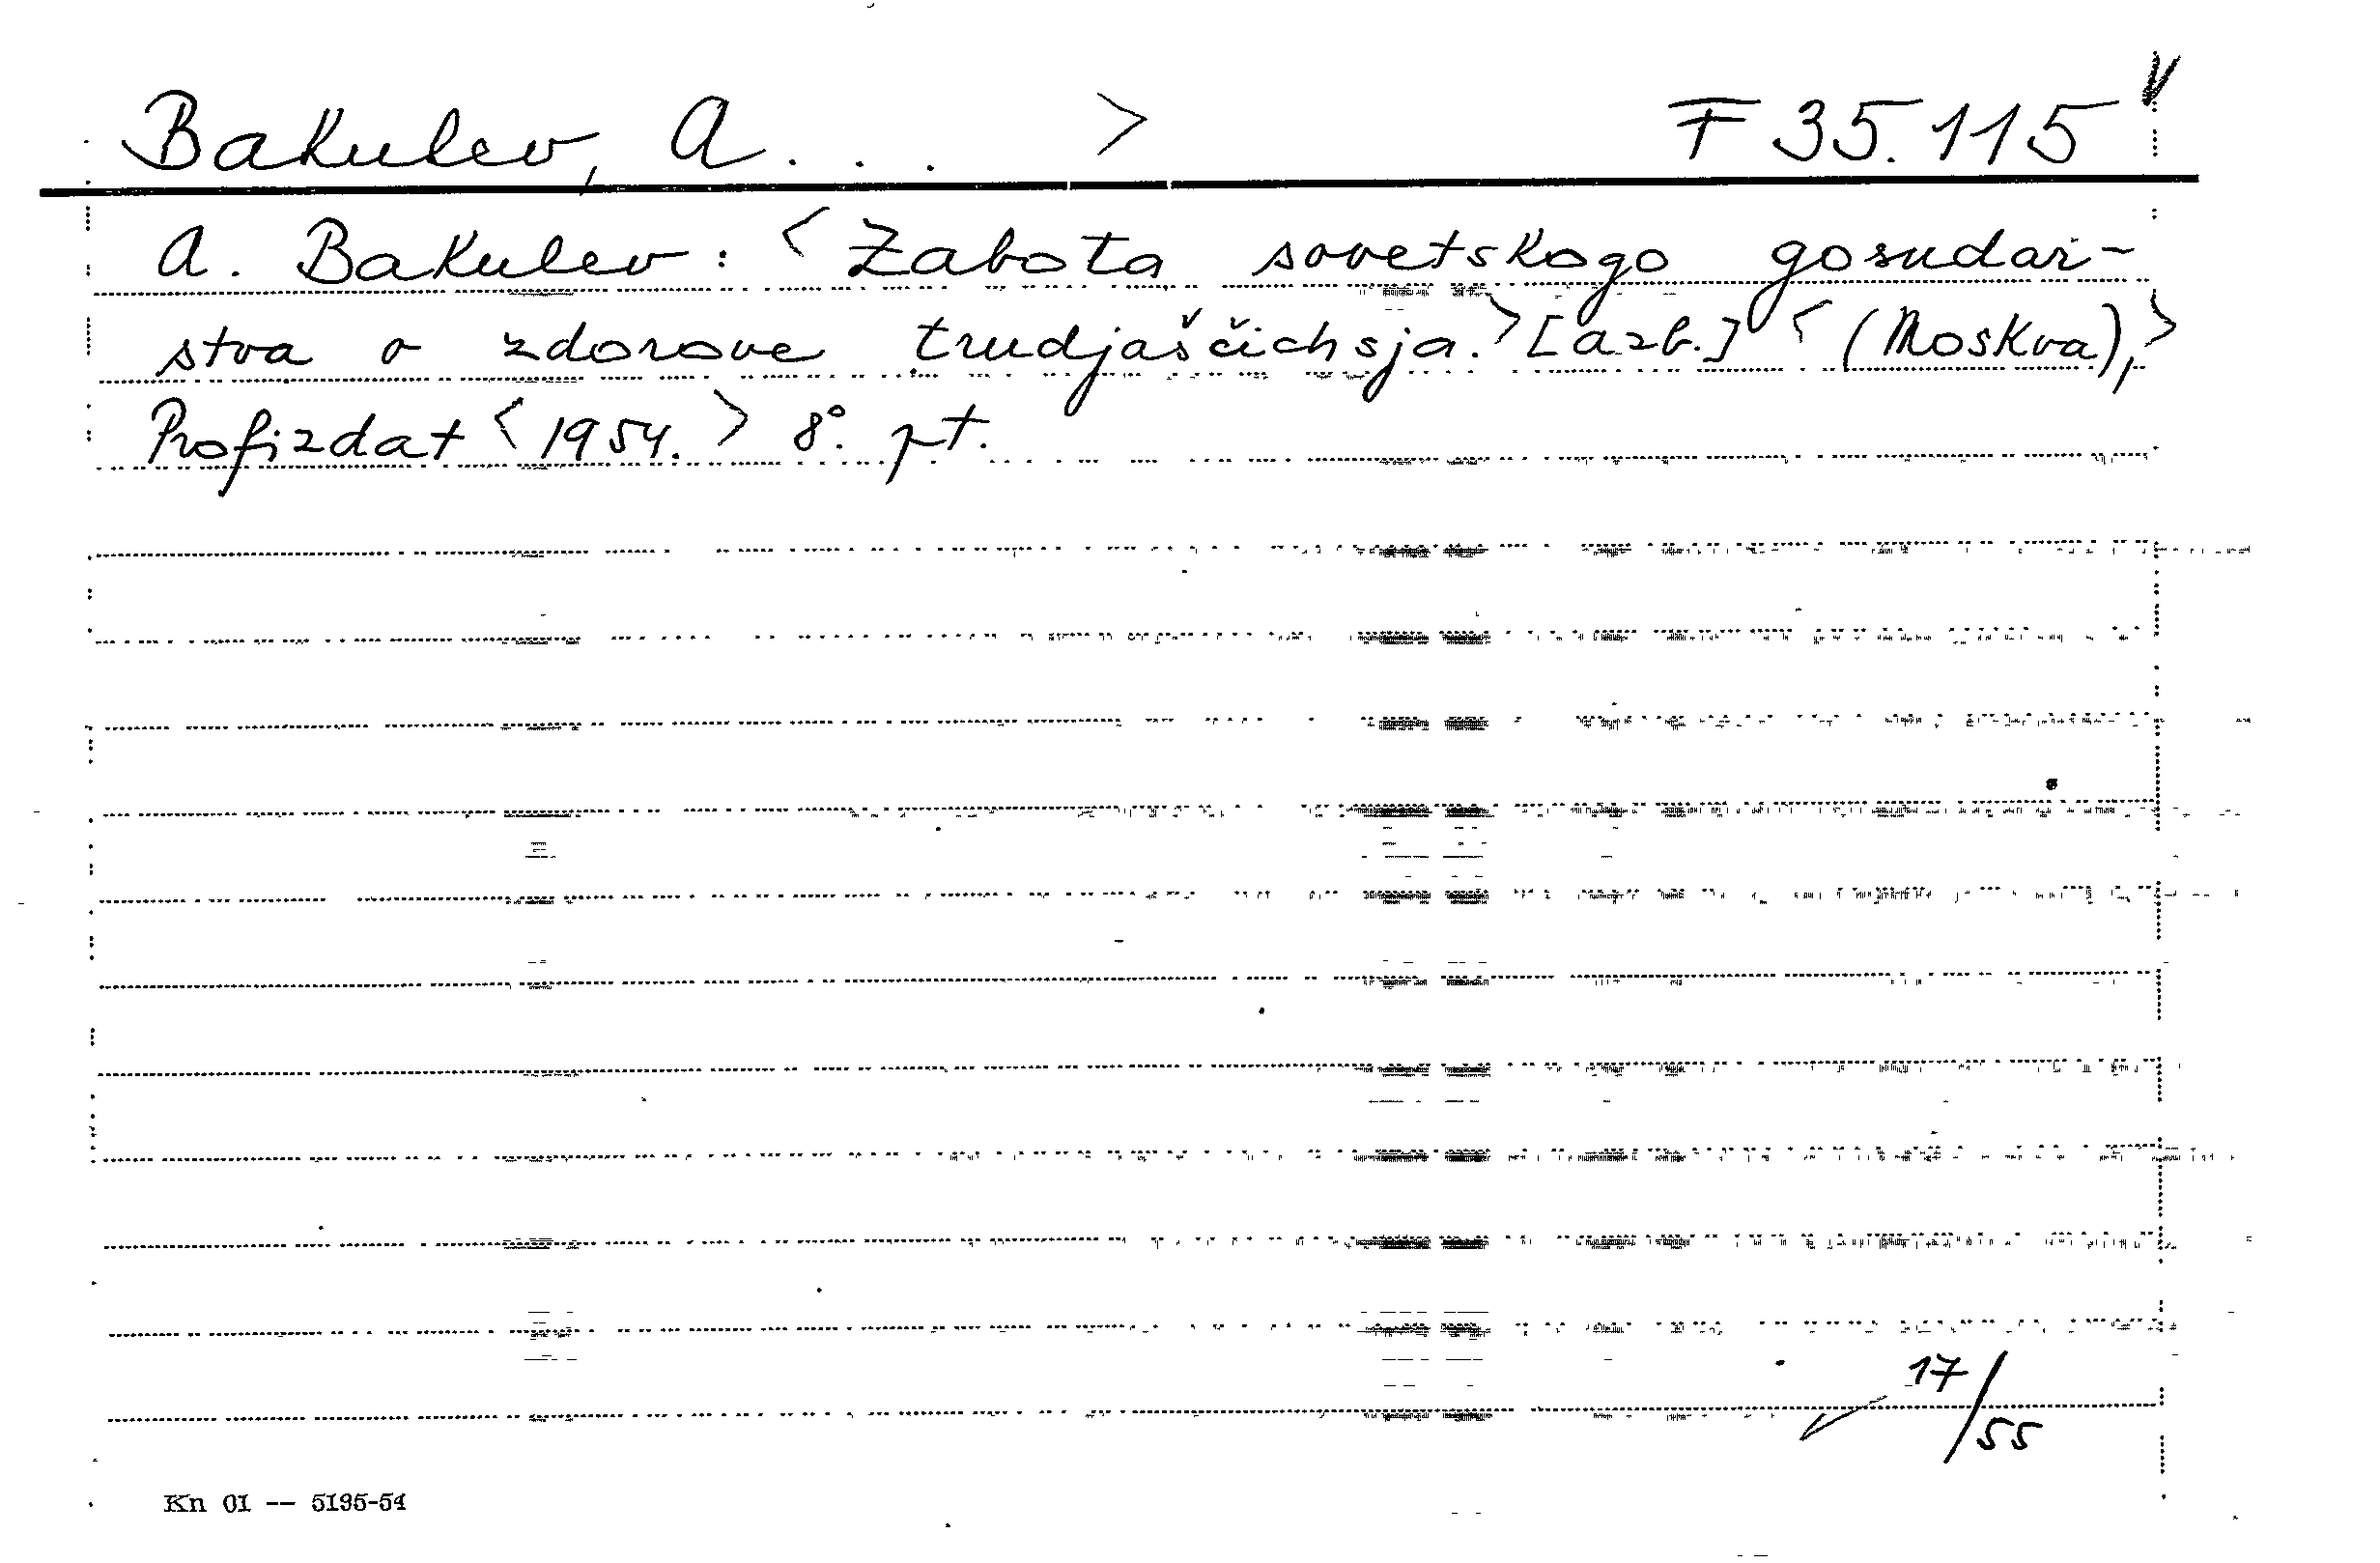 Bakulev, A . . . > F 35.115
A. Bakulev: <Zabota sovetskogo gosudar-
stva o zdorove trudjaščichsja.> [azb.] <(Moskva),>
Profizdat <1954.> 8°. pt.
17/55
Kn 01 -- 5195-54